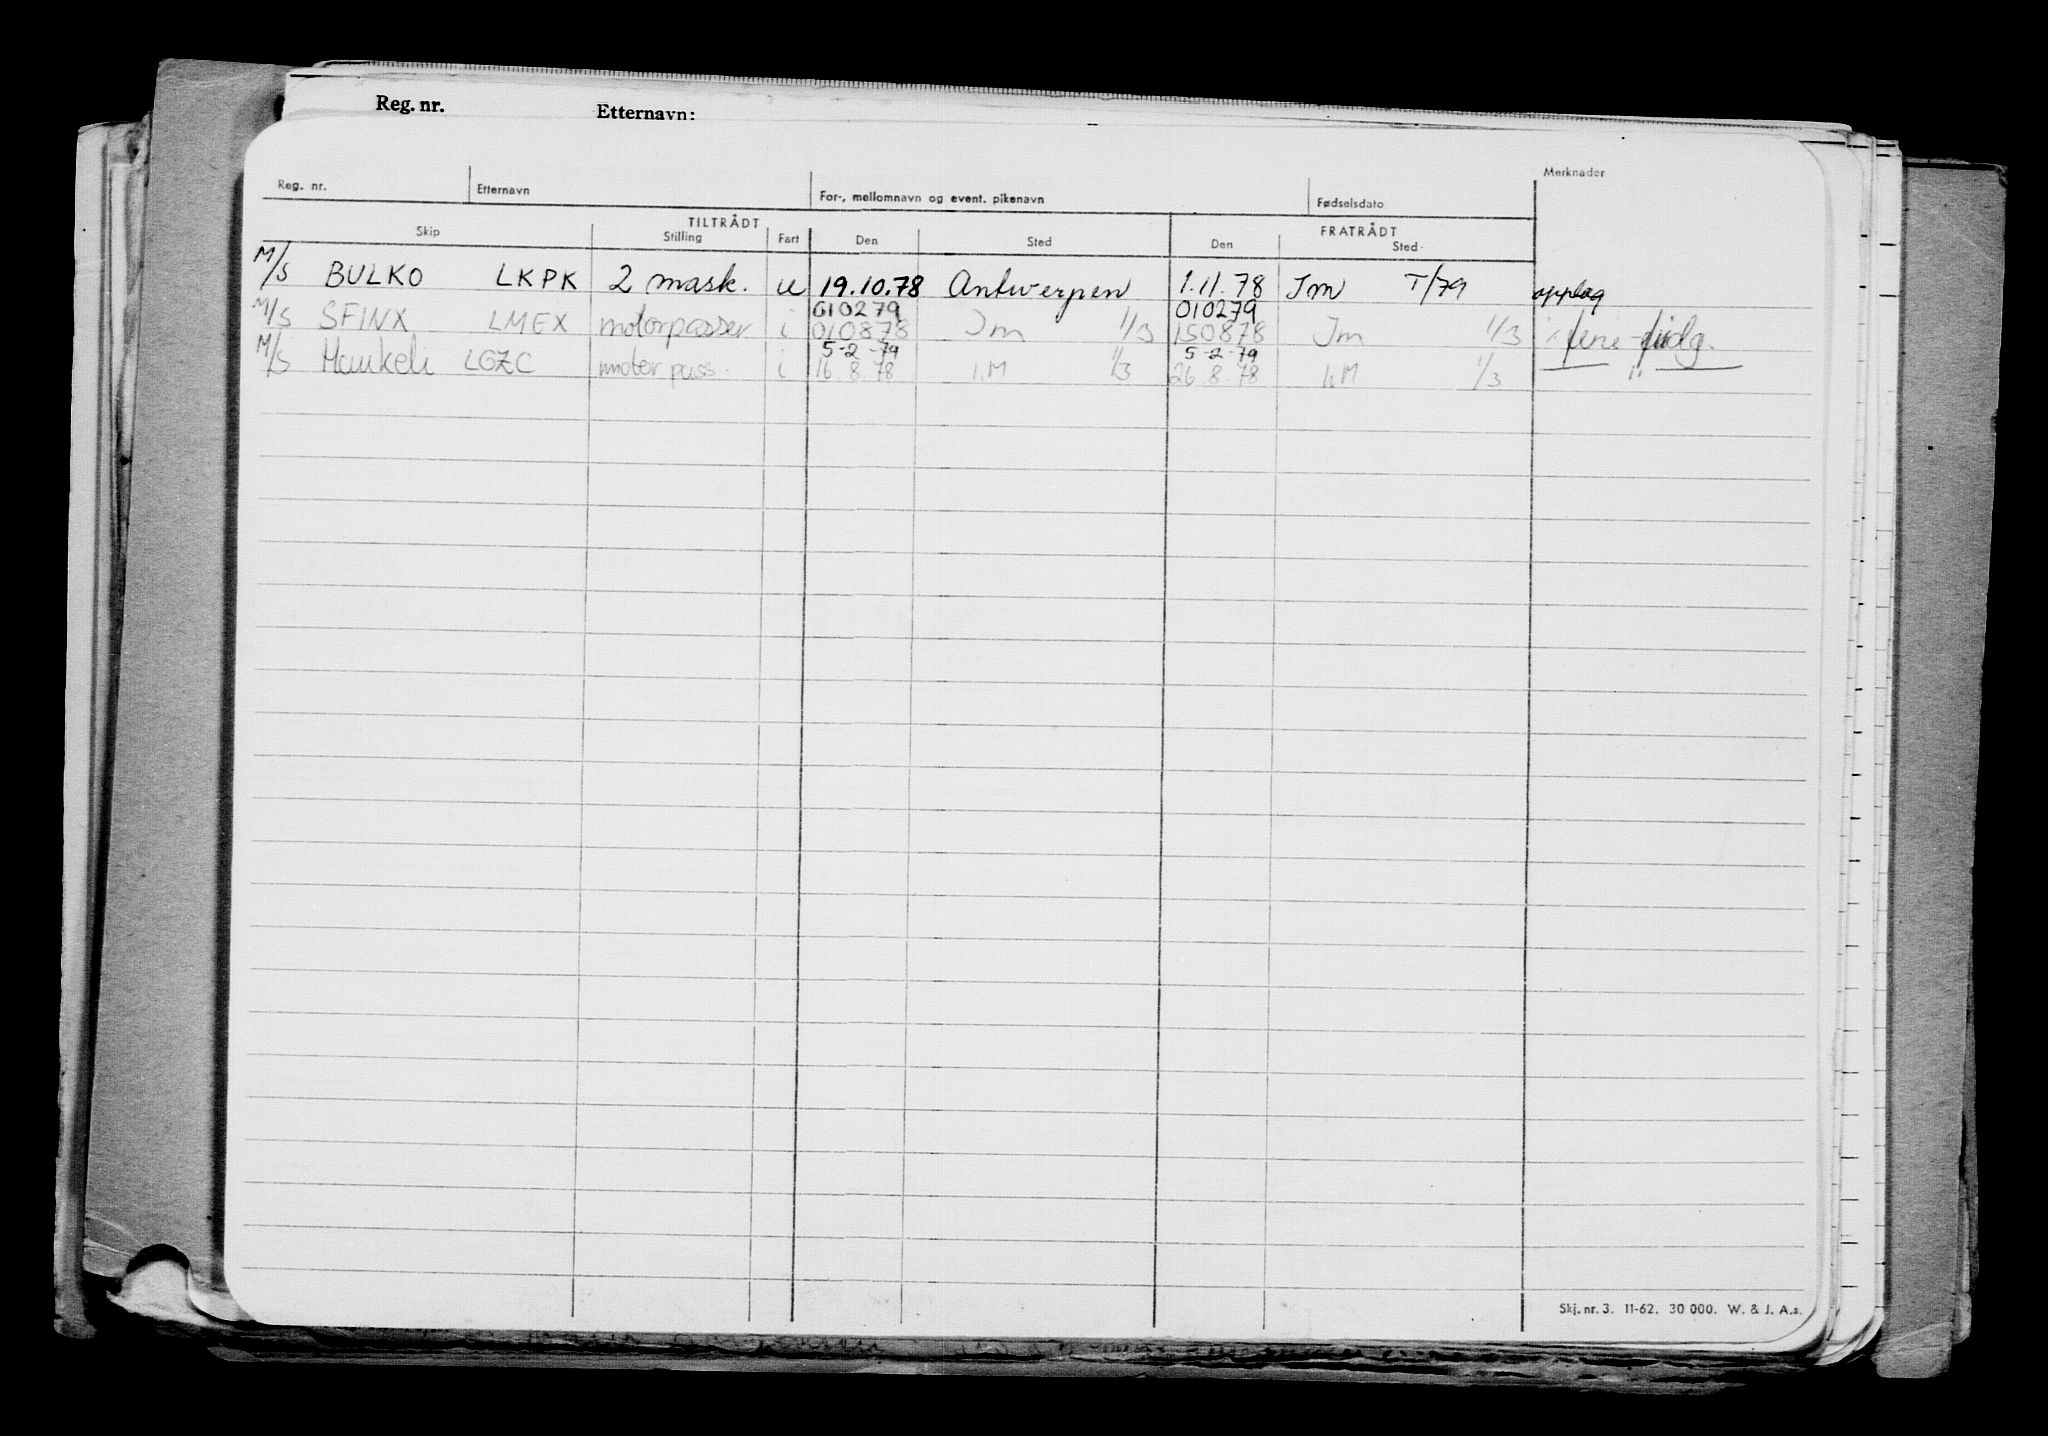 Reg. nr. Etternavn:
Merknader
Reg. nr. Etternavn For-, mellomnavn og event. pikenavn Fødselsdato
TILTRÅDT FRATRÅDT
Skip Stilling Fart Den Sted Den Sted
M/S BULKO LKPK 2 mask. u 19.10.78 Antwerpen 1.11.78 Im T/79 opplag
010279 010279
M/S SFINX LMEX motorpasser i 010878 Im 1/3 150878 Im 1/3
5-2-79 5-2-79
M/S Haukeli LGZC motor pass. i 16 8.78 I.M 1/3 26.8.78 I.M 1/3 "
Skj. nr. 3. 11-62. 30 000. W. & J. A.s.